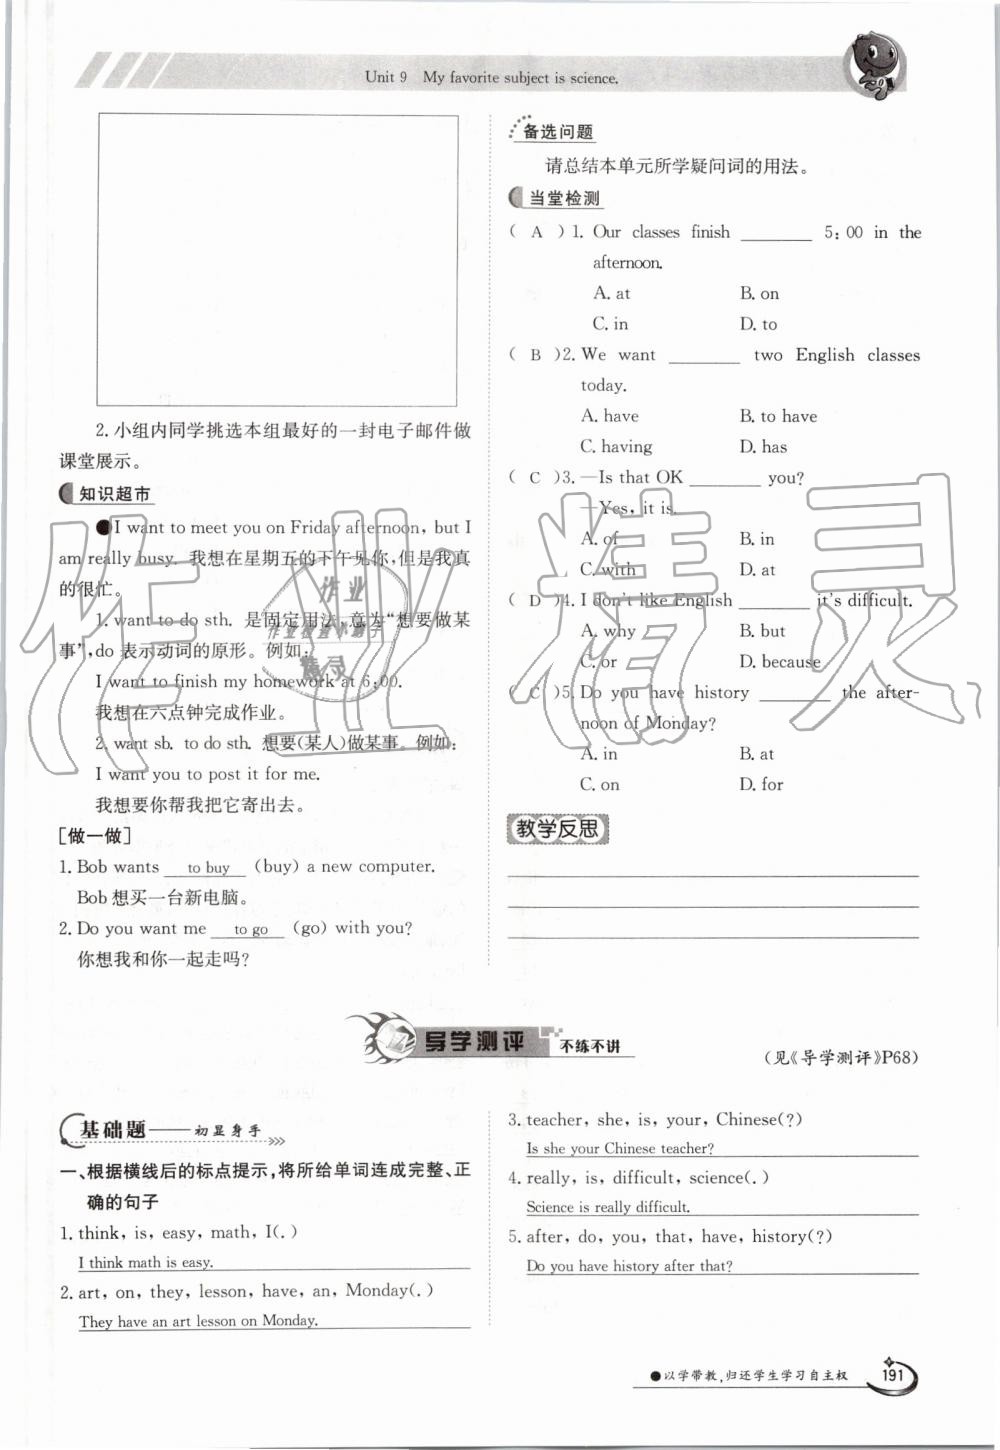 Unit 9 My favorite subject is science.
2. 小组内同学挑选本组最好的一封电子邮件做
课堂展示。
知识超市
●I want to meet you on Friday afternoon, but I
am really busy. 我想在星期五的下午见你,但是我真
的很忙。
1. want to do sth. 是固定用法,意为“想要做某
事”,do 表示动词的原形。例如:
I want to finish my homework at 6:00.
我想在六点钟完成作业。
2. want sb. to do sth. 想要(某人)做某事。例如:
I want you to post it for me.
我想要你帮我把它寄出去。
[做一做]
1. Bob wants to buy (buy) a new computer.
Bob 想买一台新电脑。
2. Do you want me to go (go) with you?
你想我和你一起走吗?
备选问题
请总结本单元所学疑问词的用法。
当堂检测
( A )1. Our classes finish ________ 5:00 in the
afternoon.
A. at B. on
C. in D. to
( B )2. We want ________ two English classes
today.
A. have B. to have
C. having D. has
( C )3. —Is that OK ________ you?
—Yes, it is.
A. of B. in
C. with D. at
( D )4. I don't like English ________ it's difficult.
A. why B. but
C. or D. because
( C )5. Do you have history ________ the after-
noon of Monday?
A. in B. at
C. on D. for
教学反思
导学测评 不练不讲
(见《导学测评》P68)
基础题——初显身手
一、根据横线后的标点提示,将所给单词连成完整、正
确的句子
1. think, is, easy, math, I(.)
I think math is easy.
2. art, on, they, lesson, have, an, Monday(.)
They have an art lesson on Monday.
3. teacher, she, is, your, Chinese(?)
Is she your Chinese teacher?
4. really, is, difficult, science(.)
Science is really difficult.
5. after, do, you, that, have, history(?)
Do you have history after that?
●以学带教,归还学生学习自主权
191
作业精灵
作业
作业检查小助手
精灵